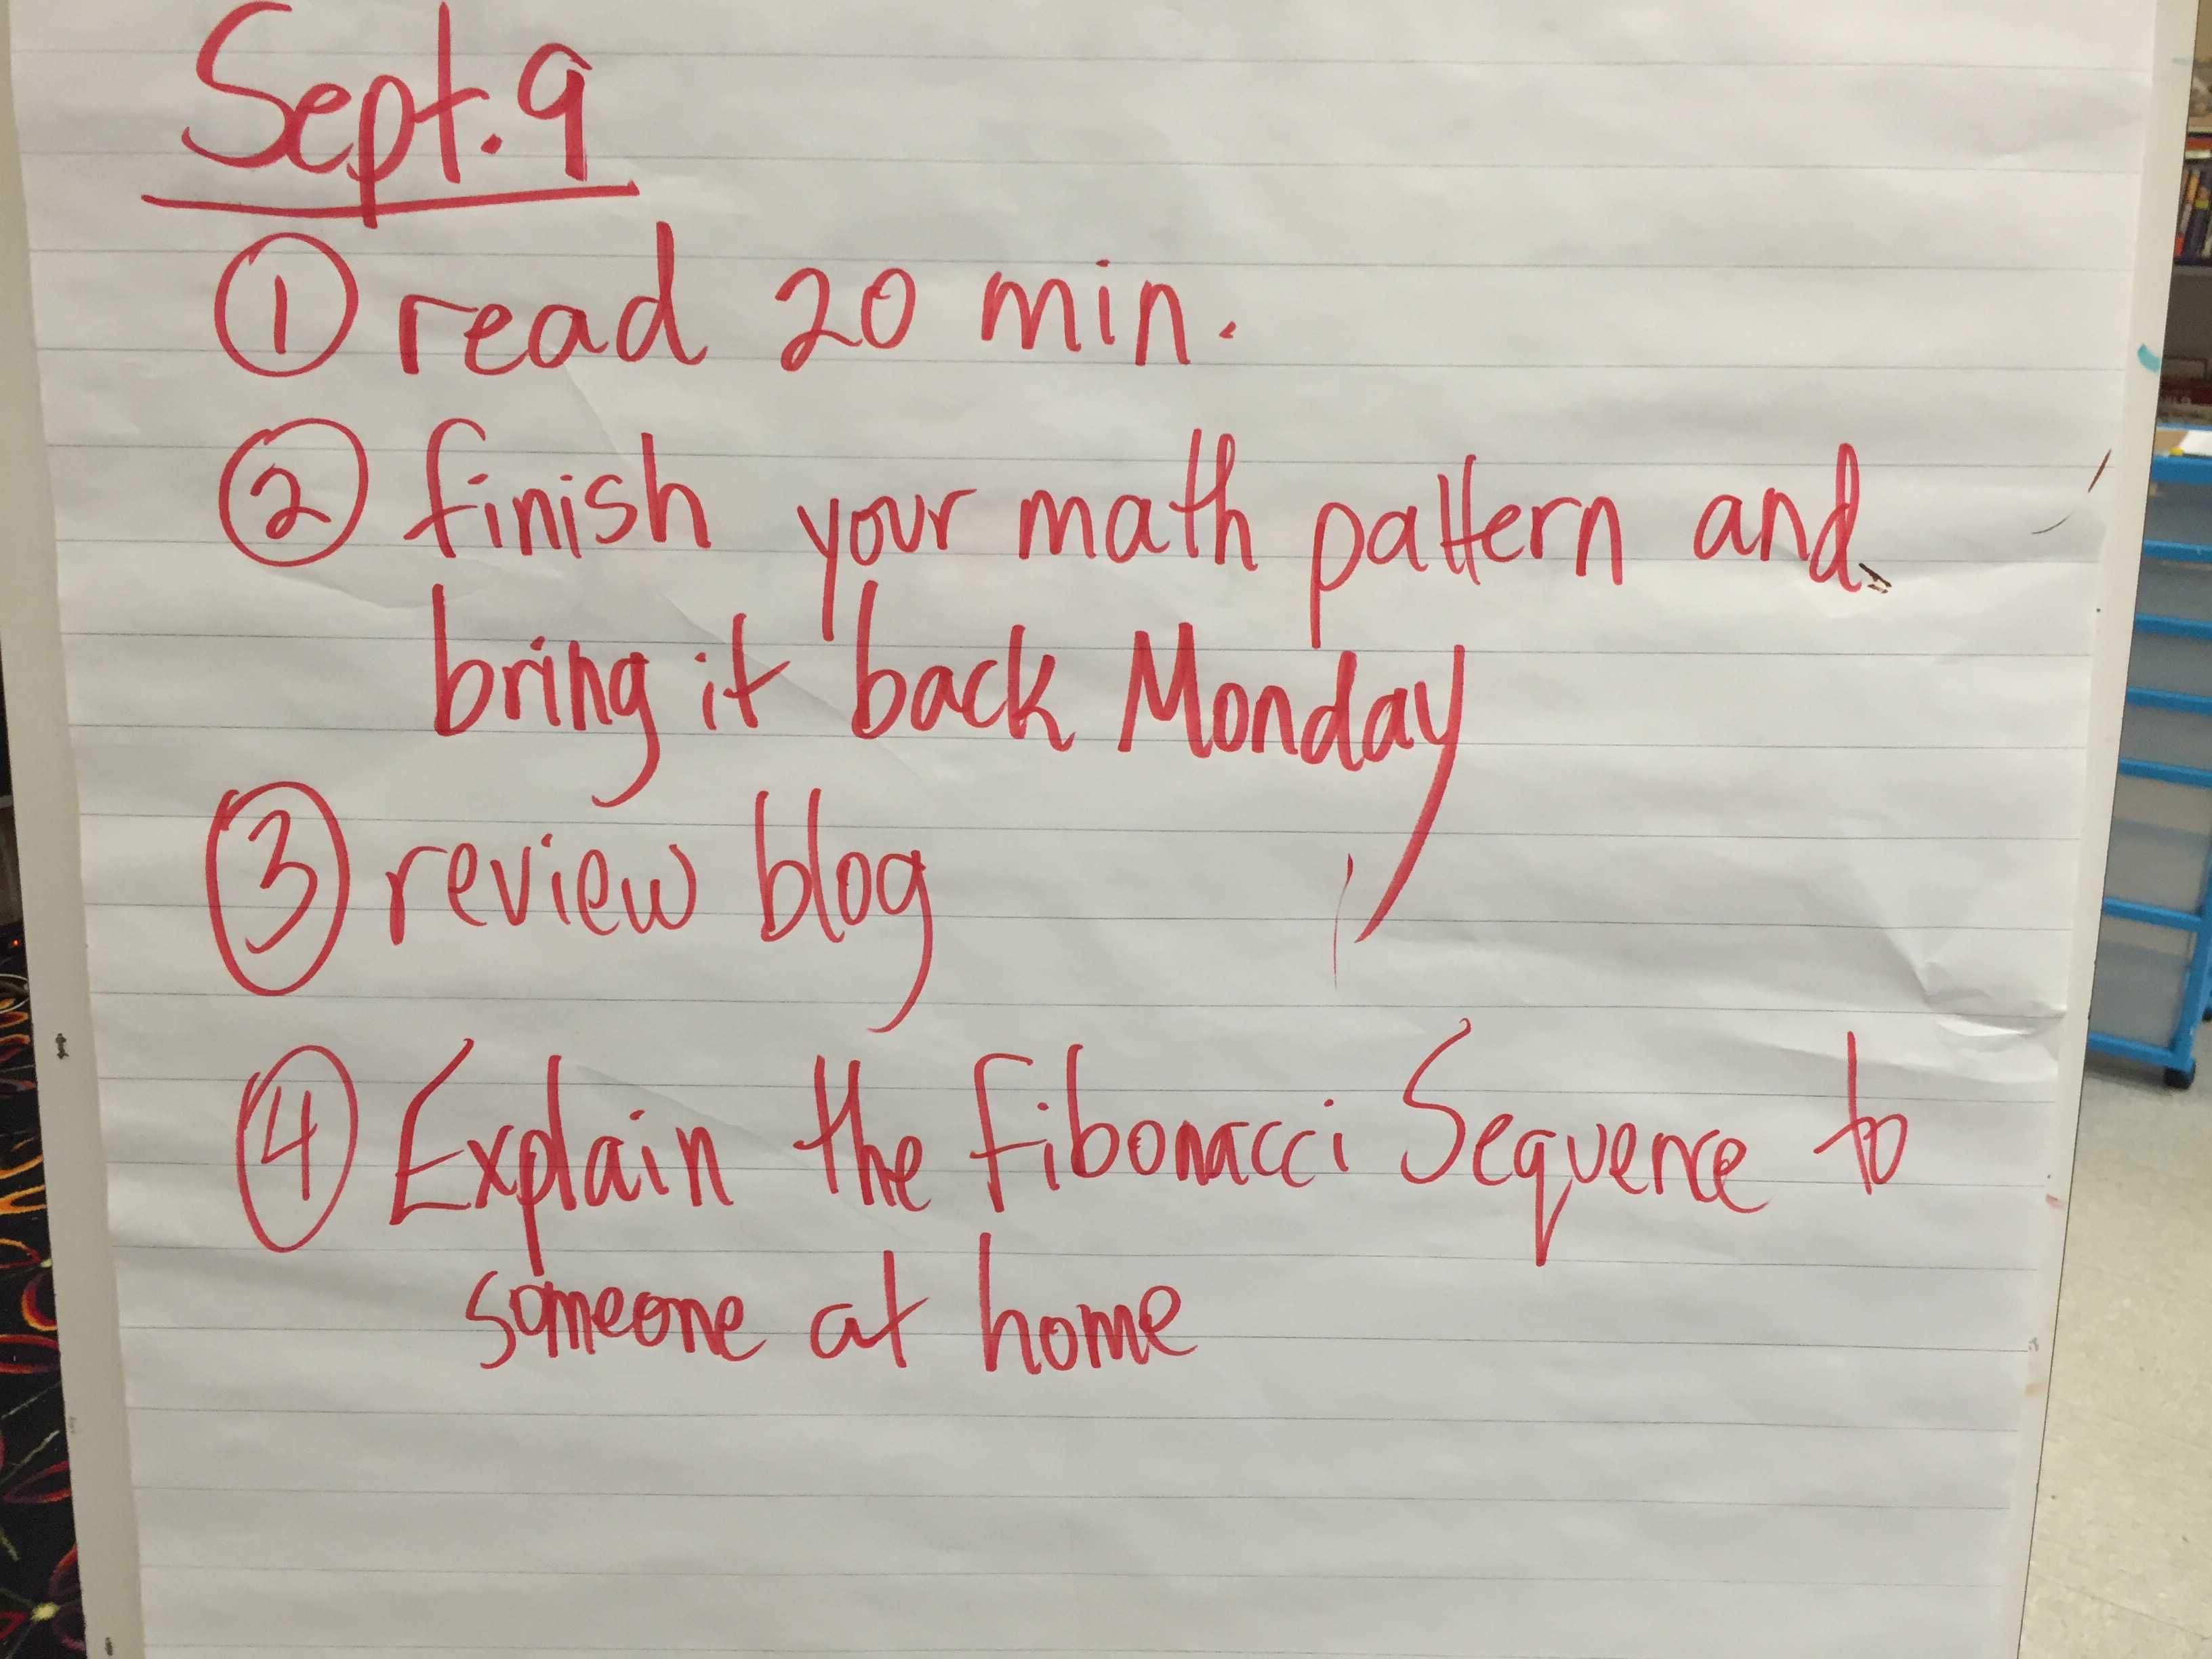 Sept. 9
① read 20 min.
② finish your math pattern and
bring it back Monday
③ review blog
④ Explain the Fibonacci Sequence to
someone at home